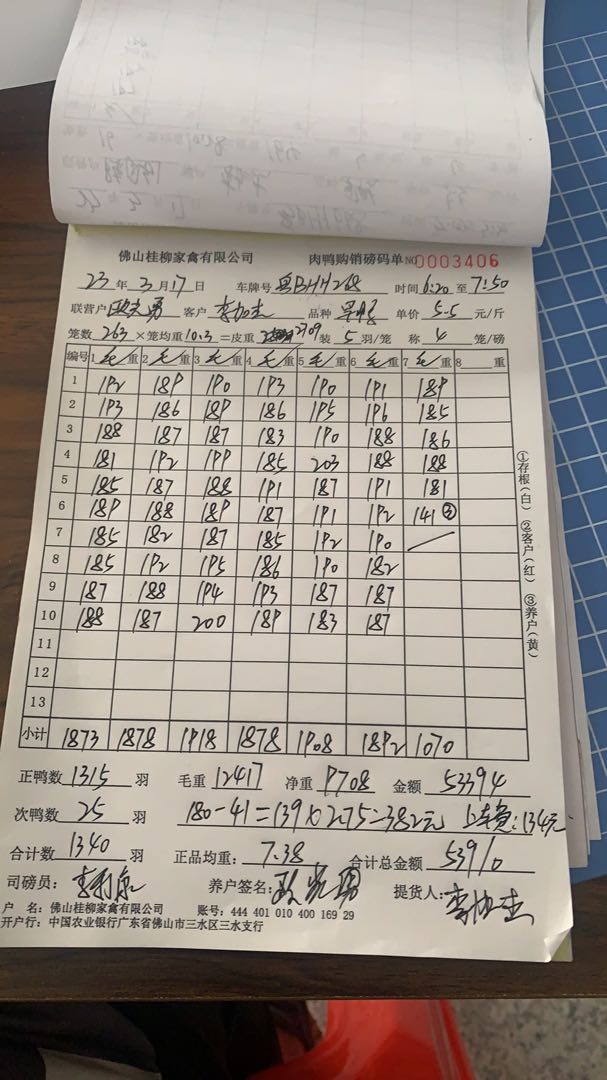 佛山桂柳家禽有限公司 肉鸭购销磅码单 NO 0003406
23年3月17日 车牌号 粤BHH268 时间 6:20 至 7:50
联营户 欧 勇 客户 李加志 品种 单价 5.5 元/斤
笼数 263 ×笼均重 10.3 =皮重 2709 装 5 羽/笼 称 4 笼/磅
编号 1 毛/重 2 毛/重 3 毛/重 4 毛/重 5 毛/重 6 毛/重 7 毛/重 8 重
1 192 189 190 193 190 191 189
2 193 186 189 186 195 196 185
3 188 187 187 183 190 188 186
4 181 192 199 185 203 188 188
5 185 187 188 191 187 191 181
6 189 188 189 187 191 192 141 ③
7 185 182 187 185 192 190
8 185 192 195 186 190 182
9 187 188 194 193 187 187
10 188 187 200 189 183 187
11
12
13
小计 1873 1878 1918 1878 1908 1892 1070
①存根(白) ②客户(红) ③养户(黄)
正鸭数 1315 羽 毛重 12417 净重 9708 金额 53394
次鸭数 25 羽 180-41=139×2.75=382元 上车费:134元
合计数 1340 羽 正品均重: 7.38 合计总金额 53910
司磅员: 养户签名: 提货人:
户 名: 佛山桂柳家禽有限公司 账号: 444 401 010 400 169 29
开户行: 中国农业银行广东省佛山市三水区三水支行